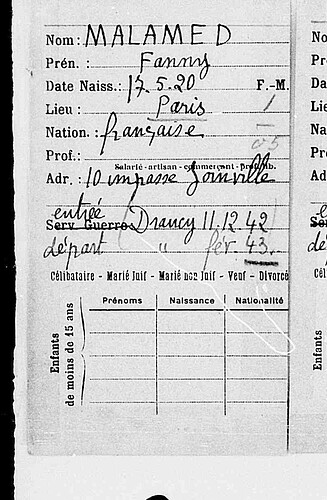 Nom : MALAMED
Prén. : Fanny
Date Naiss. : 17.5.20 F.-M.
Lieu : Paris 1
Nation. : française
Prof. :
Salarié - artisan - commerçant - prof. lib.
Adr. : 10 impasse Joinville
entrée
Serv. Guerre Drancy 11.12.42
départ " fév. 43.
Célibataire - Marié Juif - Marié non Juif - Veuf - Divorcé
Enfants de moins de 15 ans
Prénoms Naissance Nationalité
No
Pré
Da
Lie
Na
Pro
Ad
Cél
Enfants